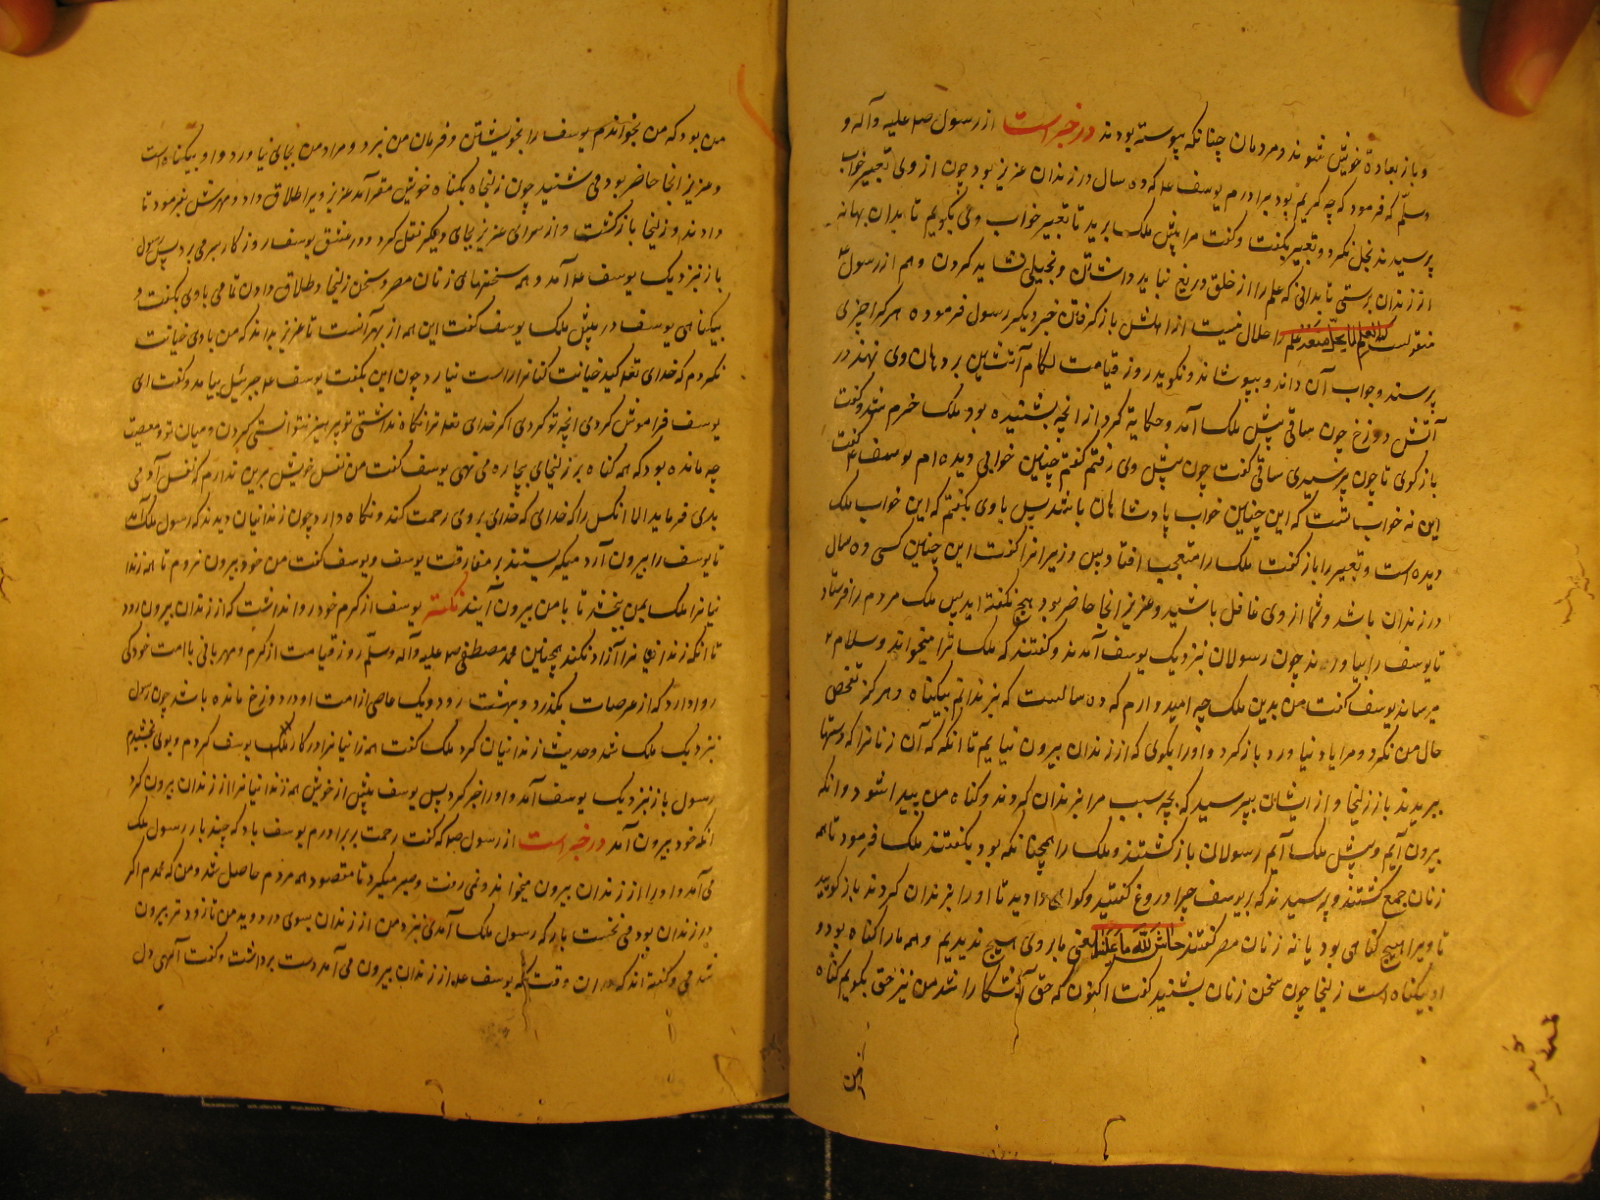 و باز بعادة خویش شوند و مردمان چنانکه پیوسته بودند در خبر است از رسول صلی علیه و آله و
وسلّم که فرمود که چه کریم بود برادرم یوسف عله که ده سال در زندان عزیز بود چون از وی تعبیر خواب
پرسیدند بخل نکرد و تعبیر بگفت و نگفت مرا پیش ملک برید تا تعبیر خواب وی بگویم تا بدان بهانه
از زندان برستی تا بدانی که علم را از خلق دریغ نباید داشتن و بخیلی نشاید کردن و هم از رسول
منقولست که العلم لا یحل منعه علم را حلال نیست از اهلش باز گرفتن خبر دیگر رسول فرموده هر که را چیزی
پرسند و جواب آن داند و بپوشاند و نگوید روز قیامت لگام آتشین بر دهان وی نهند در
آتش دوزخ چون ساقی پیش ملک آمد و حکایة کرد از انچه بشنیده بود ملک خرم شد و گفت
بازگوی تا چون پرسیدی ساقی گفت چون پیش وی رفتم گفتم چنین خوابی دیده ام یوسف گفت
این نه خواب تست که این چنین خواب پادشاهان باشد پس با وی بگفتم که این خواب ملک
دیده است و تعبیر را باز گفت ملک را متعجب افتاد پس وزیرانرا گفت این چنین کسی ده سال
در زندان باشد و شما از وی غافل باشید و عزیز انجا حاضر بود هیچ نگفته اند پس ملک مردم را فرستاد
تا یوسف را بیاورند چون رسولان نزدیک یوسف آمدند و گفتند که ملک ترا میخواند و سلام
میرساند یوسف گفت من بدین ملک چه امید دارم که ده سالست که بزندانم بیگناه و هرگز تفحص
حال من نکرد و مرا یاد نیاورد باز گرد و او را بگوی که از زندان بیرون نیایم تا انکه که آن زنانرا که دستها
ببریدند باز زلیخا و از ایشان بپرسید که بچه سبب مرا بزندان کردند و گناه من پیدا شود و انکه
بیرون آیم و پیش ملک آیم رسولان باز گشتند و ملک را همچنانکه بود بگفتند ملک فرمود تا همه
زنان جمع گشتند و پرسیدند که بر یوسف چرا دروغ گفتید و گواهی دادید تا او را بزندان کردند باز گویید
تا ویرا هیچ گناهی بود یا نه زنان مصر گفتند حاش لله ما علمنا یعنی ما بر وی هیچ ندیدیم و همه ما را گناه بود و
او بیگناه است زلیخا چون سخن زنان بشنید گفت اکنون که حق آشکارا شد من نیز حق بگویم گناه
من بود که من بخواندم یوسف را بخویشتن و فرمان من نبرد و مراد من بجای نیاورد و او بیگناه است
و عزیز انجا حاضر بود می شنید چون زلیخا بگناه خویش مقر آمد عزیز ویرا طلاق داد و مهرش بفرمود تا
دادند و زلیخا بازگشت و از سرای عزیز بجای دیگر نقل کرد و در عشق یوسف روزگار بسر می برد پس رسول
باز نزدیک یوسف عله آمد و همه سخنهای زنان مصر و سخن زلیخا و طلاق دادن تمامی با وی بگفت و
بیگناهی یوسف در پیش ملک یوسف گفت این همه از بهر آنست تا عزیز بداند که من با وی خیانت
نکردم که خدای تعالی کید خیانت کنانرا راست نیارد چون این بگفت یوسف عله جبرئیل بیامد و گفت ای
یوسف فراموش کردی انچه تو کردی اگر خدای تعه ترا نگاه نداشتی تو پرهیز نتوانستی کردن و میان تو و معصیت
چه مانده بود که همه گناه بر زلیخای بیچاره می نهی یوسف گفت من نفس خویش بری ندارم که نفس آدمی
بدی فرماید الا انکس را که خدای که خدای بر وی رحمت کند و نگاه دارد چون زندانیان دیدند که رسول ملک آمد
تا یوسف را بیرون آرد میگریستند بر مفارقت یوسف و یوسف گفت من خود بیرون نروم تا همه زندا
نیانرا ملک بمن بخشد تا با من بیرون آیند نکته یوسف از کرم خود روا نداشت که از زندان بیرون رود
تا انکه زندانیانرا آزاد نکند همچنین محمد مصطفی صلی علیه و آله وسلّم روز قیامت از کرم و مهربانی با امت خود کی
روا دارد که از عرصات بگذرد و ببهشت رود و یک عاصی از امت او در دوزخ مانده باشد چون رسول
نزدیک ملک شد و حدیث زندانیان کرد ملک گفت همه زندانیانرا در کار یوسف کردم و بوی بخشیدم
رسول باز نزدیک یوسف آمد و او را خبر کرد پس یوسف پیش از خویش همه زندانیانرا از زندان بیرون کرد
انکه خود بیرون آمد در خبر است از رسول صله که گفت رحمت بر برادرم یوسف باد که چند بار رسول ملک
می آمد و او را از زندان بیرون میخواند و نمی رفت و صبر میکرد تا مقصود همه مردم حاصل شد و من که محمدم اگر
در زندان بودمی نخست بار که رسول ملک آمدی نزد من از زندان بسوی در دویدمی تا زودتر بیرون
شدمی و گفته اند که در ان وقت که یوسف عله از زندان بیرون می آمد دست برداشت و گفت آلهی دل